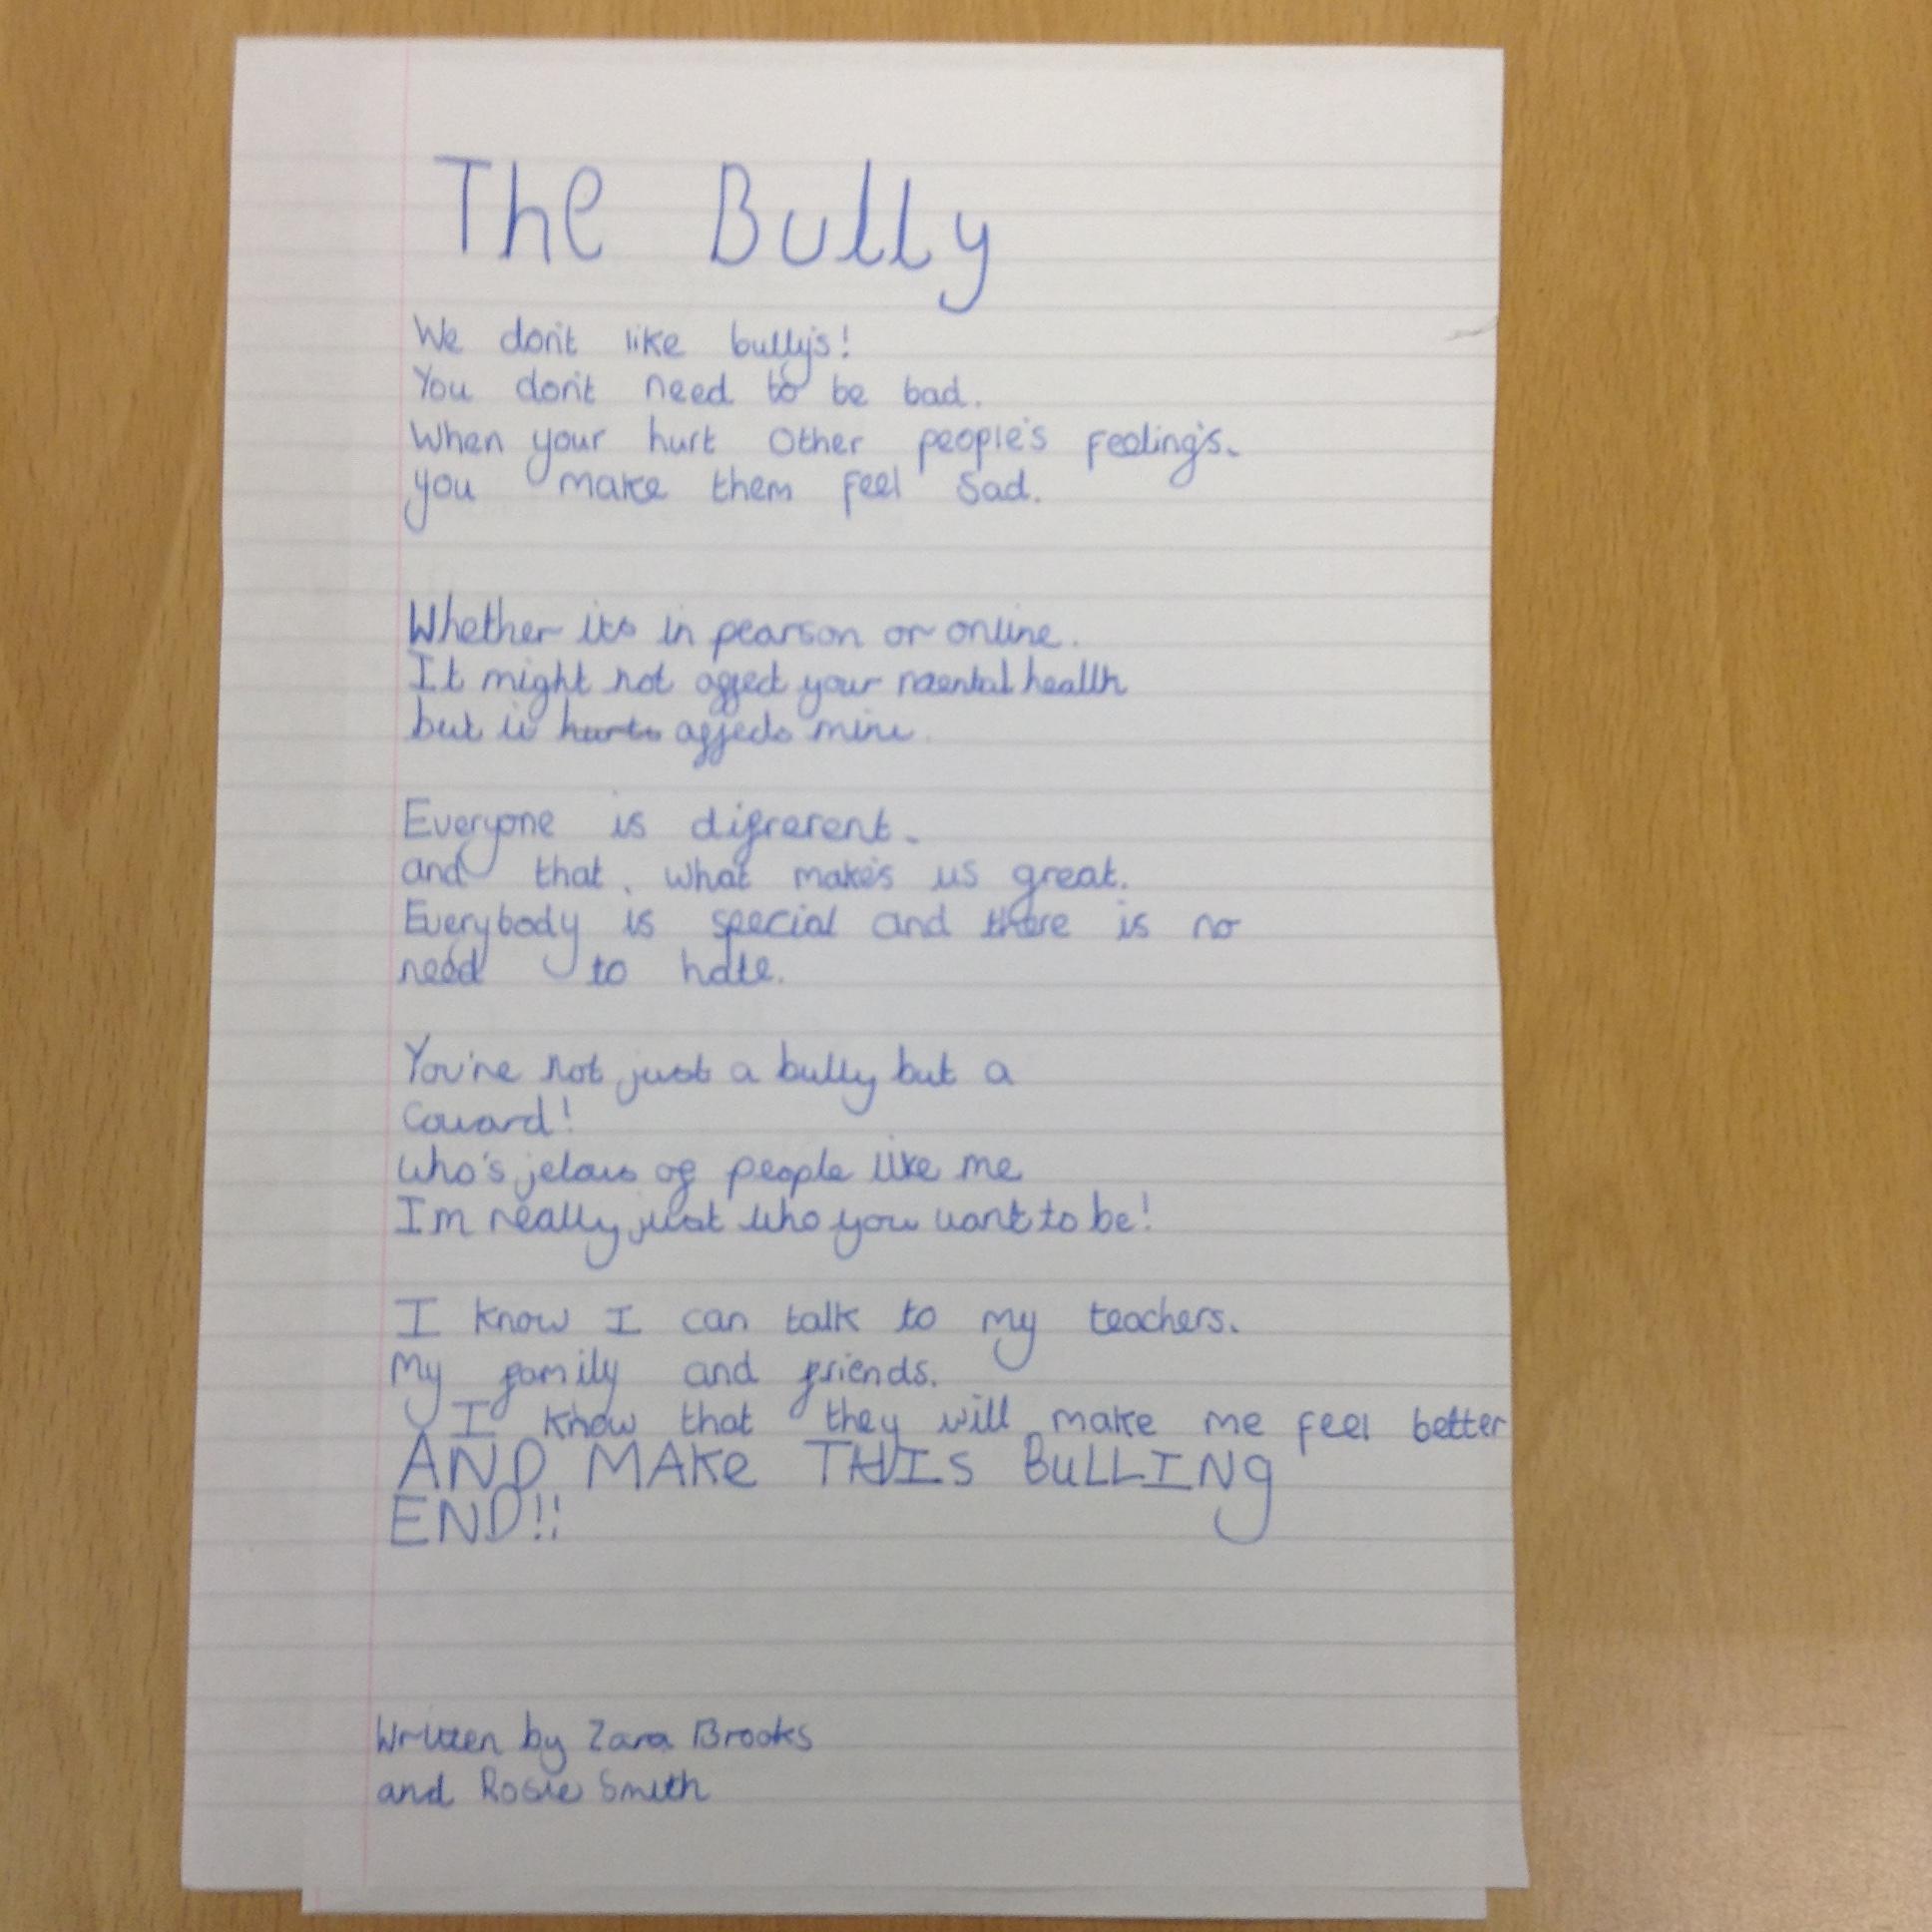 The Bully
We don't like bully's!
You don't need to be bad.
When your hurt other people's feeling's.
you make them feel sad.
Whether its in pearson or online.
It might not affect your mental health
but it hurts affects mine.
Everyone is different.
and that. what make's us great.
Everybody is special and there is no
need to hate.
You're not just a bully but a
coward!
who's jelous of people like me
I'm really just who you want to be!
I know I can talk to my teachers.
My family and friends.
I know that they will make me feel better
AND MAKe THIS BuLLING
END!!
Written by Zara Brooks
and Rosie Smith